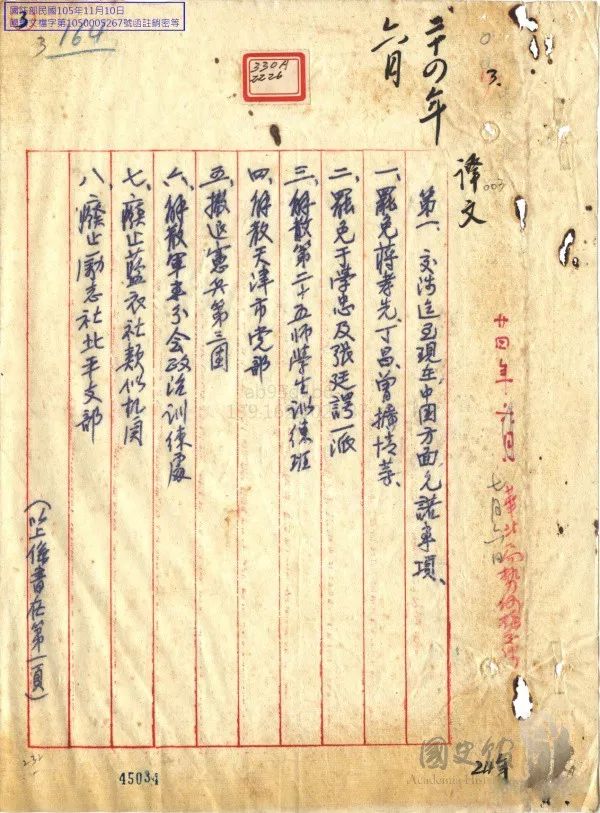 國防部民國105年11月10日
國部文檔字第1050005267號函註銷密等
3
3
164
330A
2226
二十四年
六月
3
譯文
003
廿四年六月
七月六日
第一、交涉迄至現在、中国方面允諾事項、
一、罷免蔣孝先丁昌、曾擴情等、
二、罷免于学忠及張廷諤一派
三、解散第二十五師學生訓練班
四、解散天津市党部
五、撤退憲兵第三團
六、解散軍事分会政治訓練處
七、廢止藍衣社類似机関
八、廢止励志社北平支部
（以上係書在第一頁）
45034
國史館
Academia Historica
24年